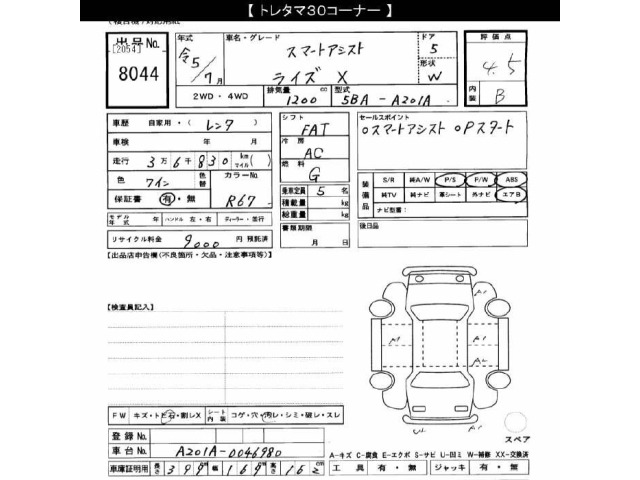 【 トレタマ30コーナー 】
出品No.
[2054]
8044
年式
令5/7月
車名・グレード
スマートアシスト
ライズ X
ドア
5
形状
W
評価点
4.5
内装
B
2WD・4WD
排気量
1200 cc
型式
5BA-A201A
車歴 自家用・(レンタ)
車検 年 月
走行 3万6千830 km マイル( )
色 ワイン 色替 カラーNo.
保証書 有・無 R67
モデル年式 年 ハンドル 左・右 ディーラー・並行
リサイクル料金 9000 円 預託済
シフト
FAT
冷房
AC
燃料
G
乗車定員 5 名
積載量 kg
総重量 kg
書類期限
月 日
セールスポイント
○スマートアシスト ○Pスタート
装備品
S/R 純A/W P/S P/W ABS
純TV 純ナビ 革シート 外ナビ エアB
ナビ型番:
後日品
【出品店申告欄(不良箇所・欠品・注意事項等)】
【検査員記入】
A1
A1
A1
A2
A1
FW キズ・トビ石・割レX シート内装 コゲ・穴・汚レ・シミ・破レ・スレ
登録No.
車台No. A201A-0046980
車庫証明用 長さ 399 cm 幅 169 cm 高さ 162 cm
スペア
A-キズ C-腐食 E-エクボ S-サビ U-凹ミ W-補修 XX-交換済
工具 有・無 ジャッキ 有・無